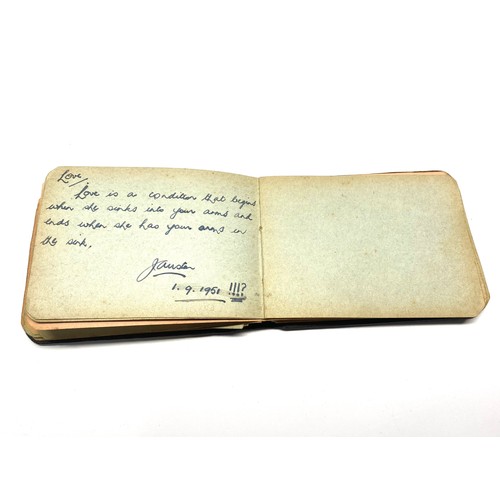 Love/.
Love is a condition that begins
when she sinks into your arms and
ends when she has your arms in
the sink.
J Austen
1. 9. 1951 !!!?